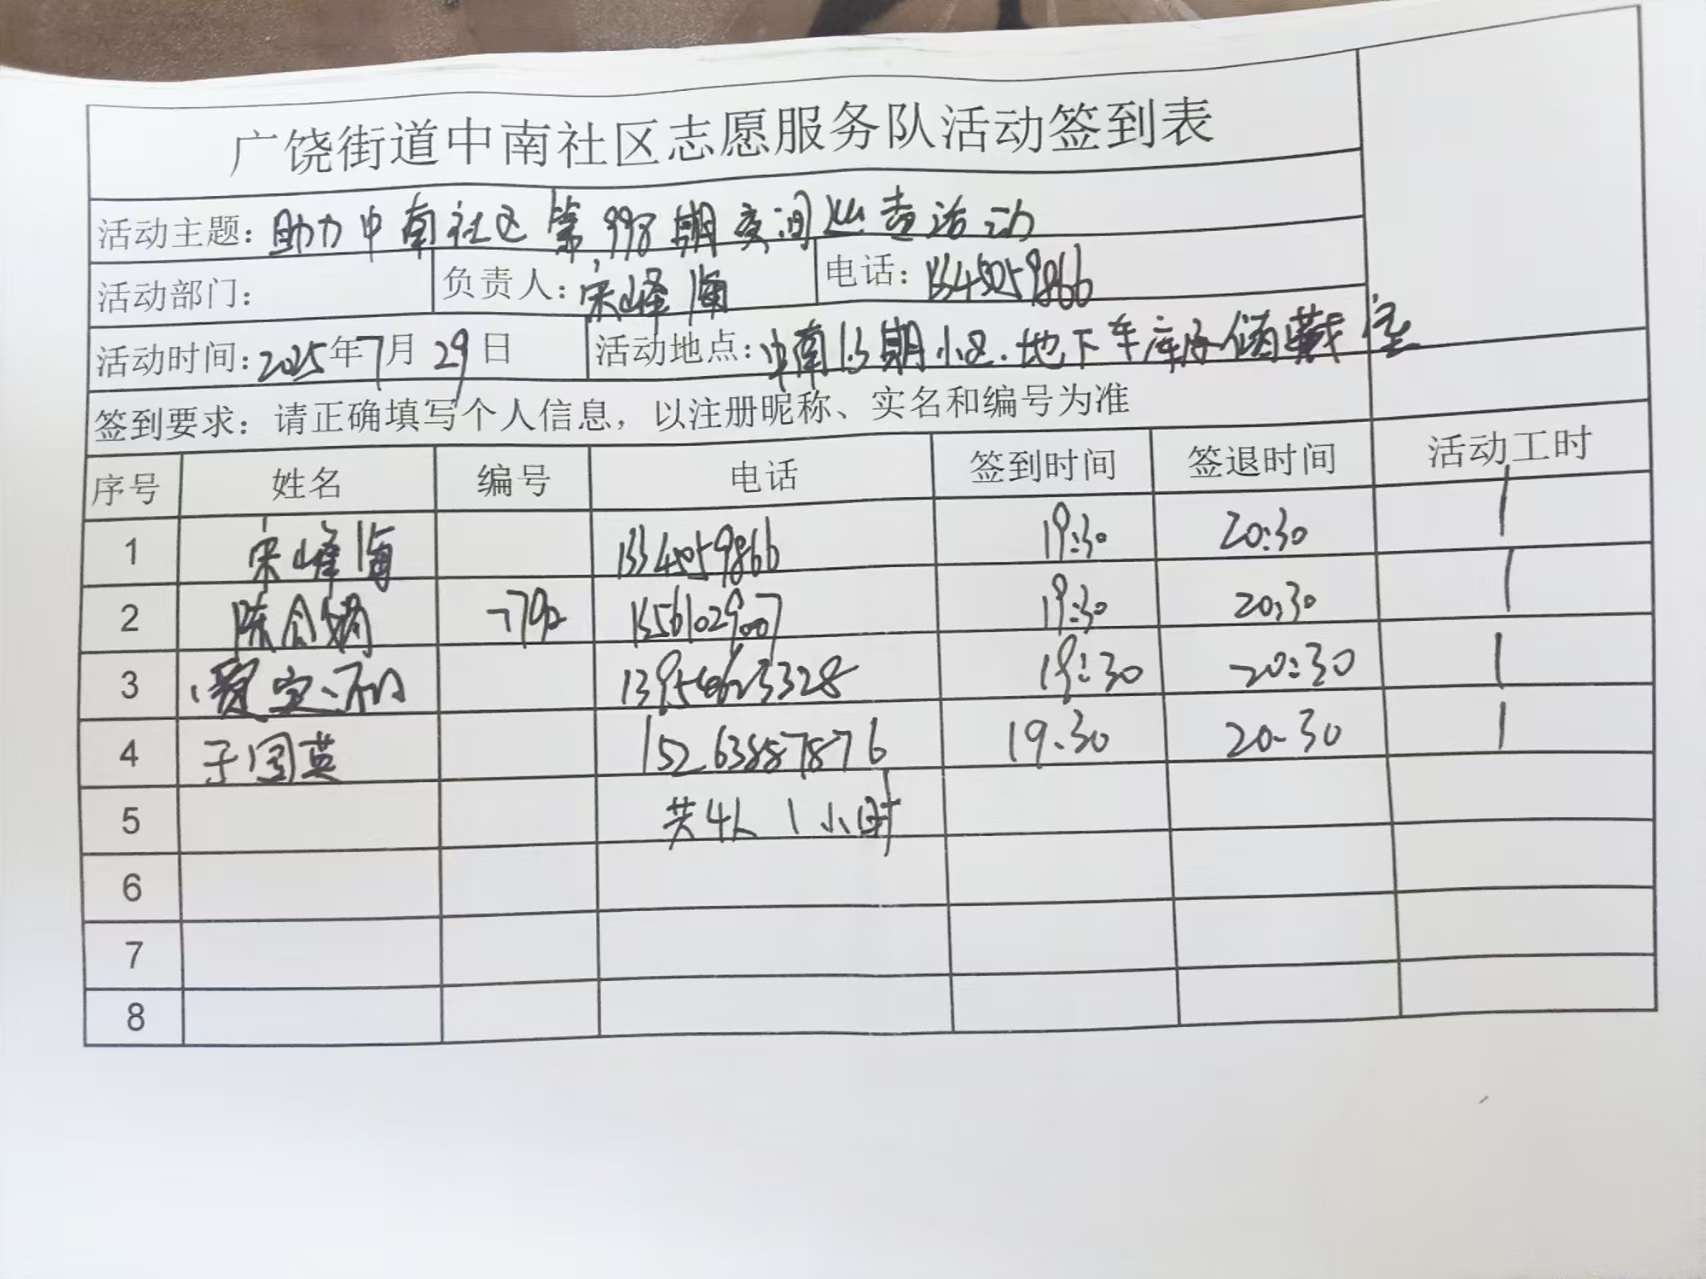 广饶街道中南社区志愿服务队活动签到表
活动主题：助力中南社区第998期夜间巡查活动
活动部门： 负责人：宋峰海 电话：13345059866
活动时间：2025年7月29日 活动地点：中南1.3期小区.地下车库
签到要求：请正确填写个人信息，以注册昵称、实名和编号为准
序号 姓名 编号 电话 签到时间 签退时间 活动工时
1 宋峰海 19:30 20:30 1
2 15561029007 19:30 20:30 1
3 19:30 20:30 1
4 于国英 15263887876 19.30 20-30 1
5 共4人1小时
6
7
8